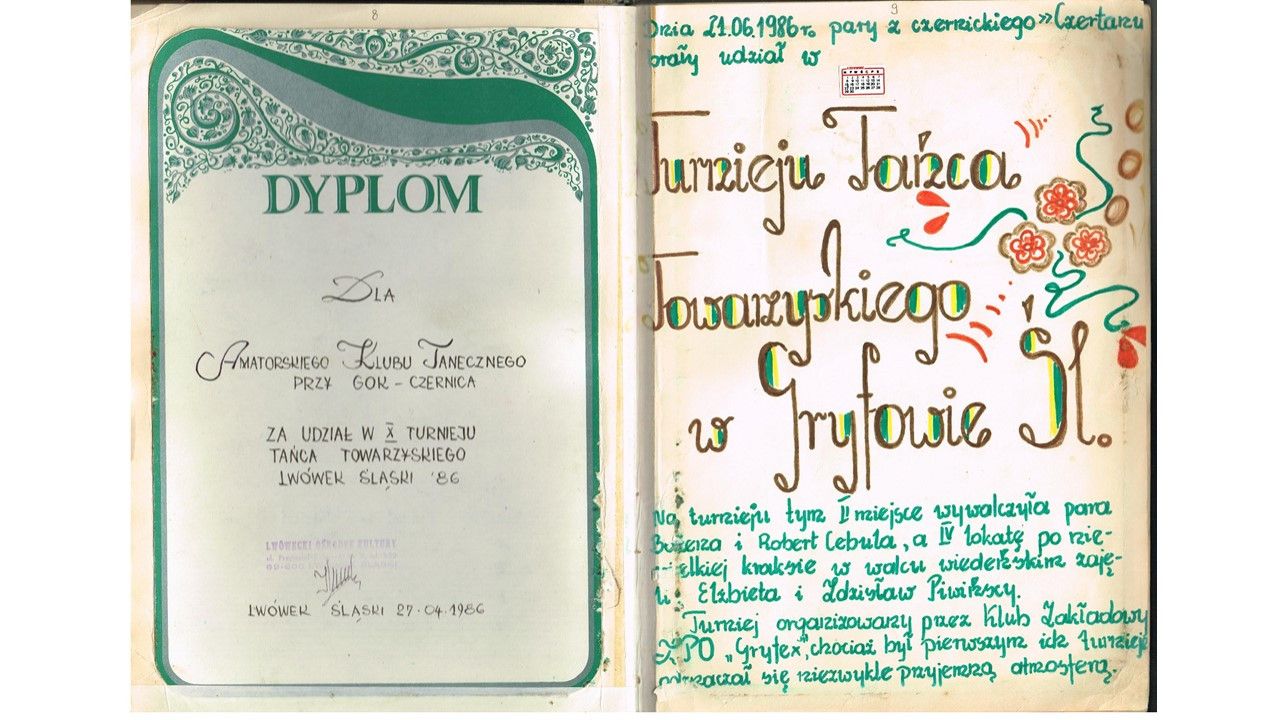 8
DYPLOM
DLA
AMATORSKIEGO KLUBU TANECZNEGO
PRZY GOK - CZERNICA
ZA UDZIAŁ W X TURNIEJU
TAŃCA TOWARZYSKIEGO
LWÓWEK ŚLĄSKI '86
LWÓWECKI OŚRODEK KULTURY
LWÓWEK ŚLĄSKI 27.04.1986
9
Dnia 21.06.1986r. pary z czernickiego »Czertanu
brały udział w
Turnieju Tańca
Towarzyskiego
w Gryfowie Śl.
Na turnieju tym II miejsce wywalczyła para
Bożena i Robert Cebula, a IV lokatę po nie-
elkiej kraksie w walcu wiedeńskim zaję-
Elżbieta i Zdzisław Piwińscy.
Turniej organizowany przez Klub Zakładowy
ZPO „Gryfex", chociaż był pierwszym ich turnieje
odznaczał się niezwykle przyjemną atmosferą.